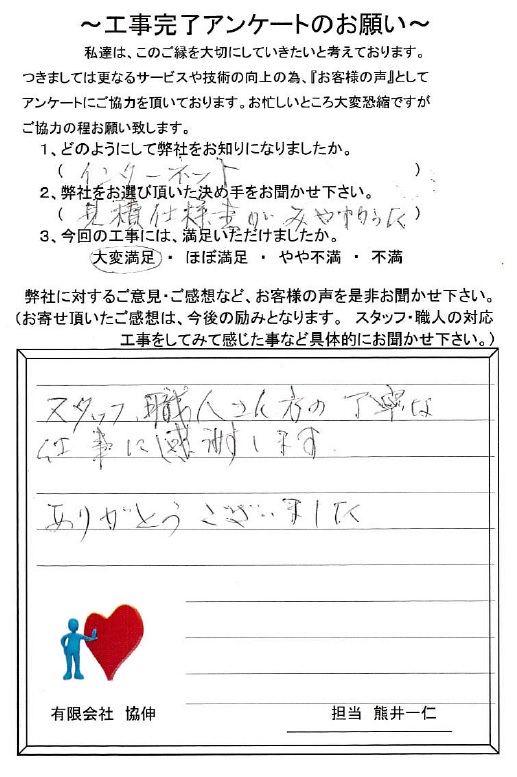 ～工事完了アンケートのお願い～
私達は、このご縁を大切にしていきたいと考えております。
つきましては更なるサービスや技術の向上の為、『お客様の声』として
アンケートにご協力を頂いております。お忙しいところ大変恐縮ですが
ご協力の程お願い致します。
1、どのようにして弊社をお知りになりましたか。
（ インターネット ）
2、弊社をお選び頂いた決め手をお聞かせ下さい。
（ 見積仕様書がみやすかった ）
3、今回の工事には、満足いただけましたか。
大変満足 ・ ほぼ満足 ・ やや不満 ・ 不満
弊社に対するご意見・ご感想など、お客様の声を是非お聞かせ下さい。
（お寄せ頂いたご感想は、今後の励みとなります。 スタッフ・職人の対応
工事をしてみて感じた事など具体的にお聞かせ下さい。）
スタッフ、職人さん方の丁寧な
仕事に感謝します
ありがとうございました
有限会社 協伸
担当 熊井一仁